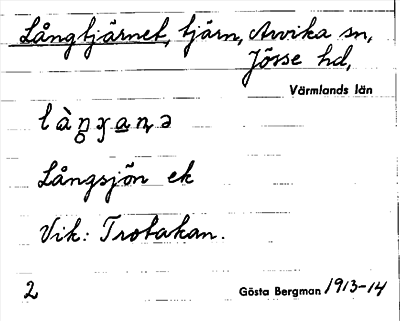 Långtjärnet, tjärn, Arvika sn,
Jösse hd,
Värmlands län
Långsjön ek
Vik: Trotakan.
2 Gösta Bergman 1913-14